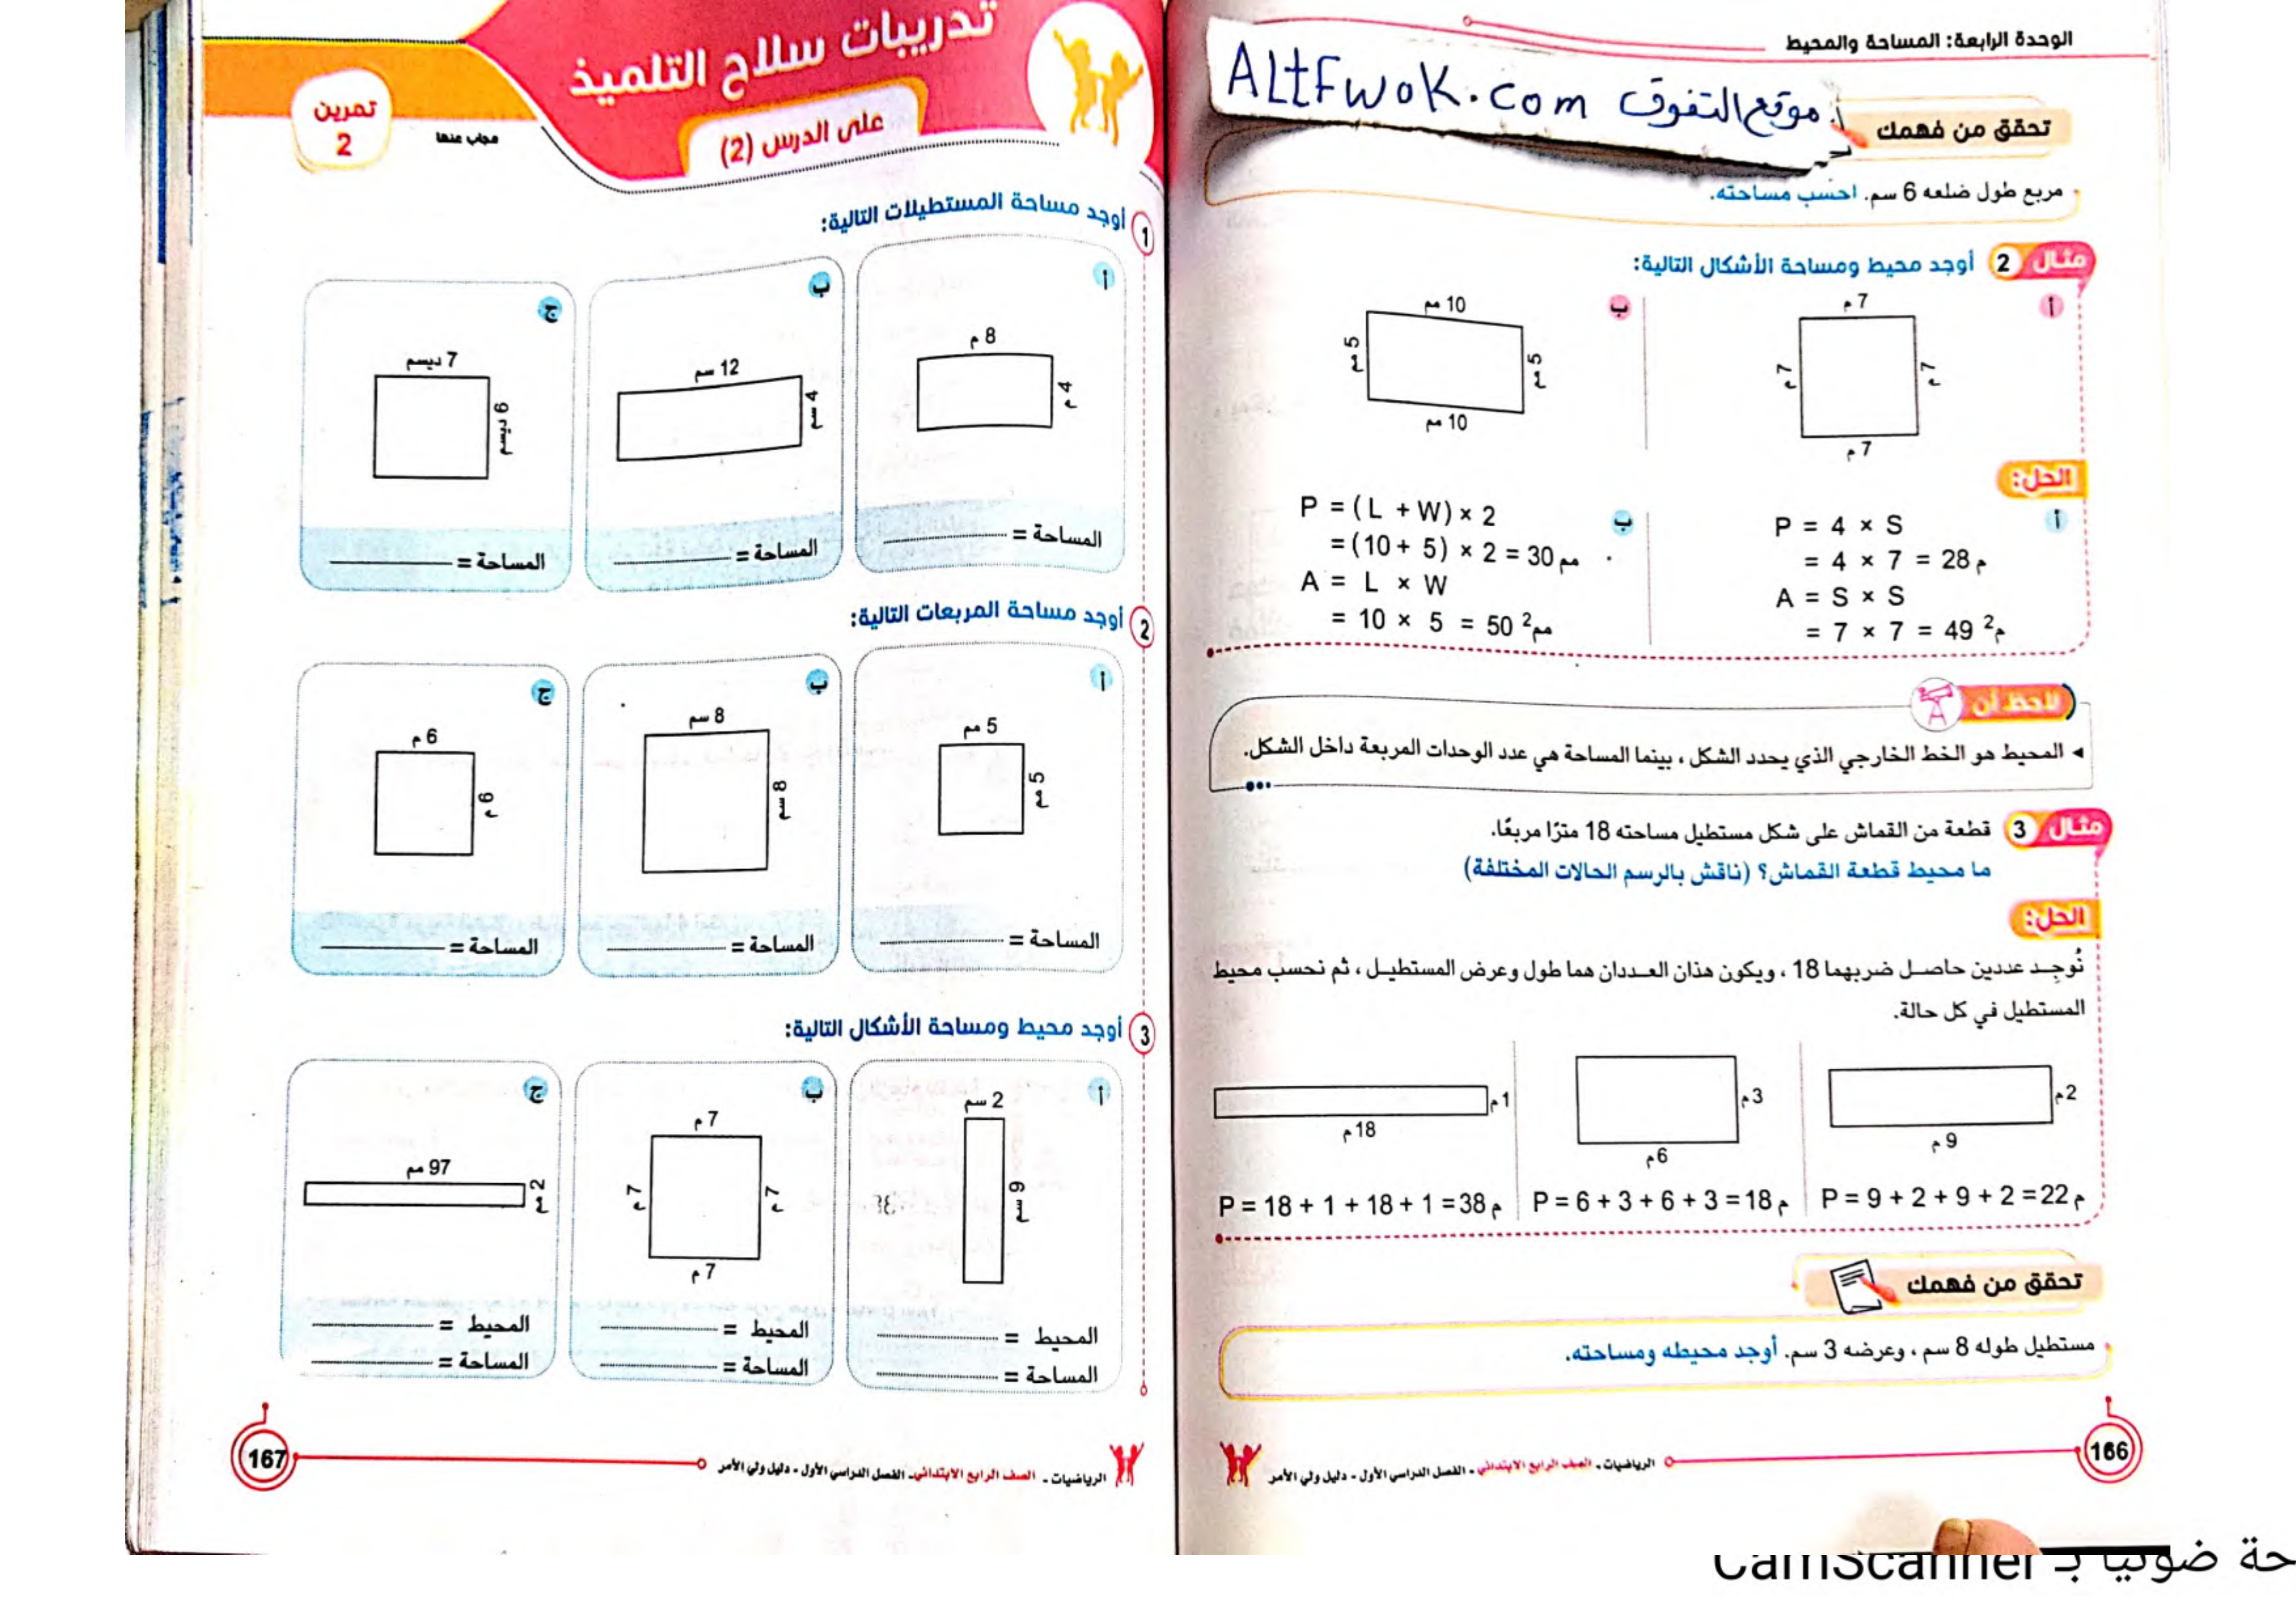 الوحدة الرابعة: المساحة والمحيط
موقع التفوق ALtFwoK.com
تحقق من فهمك
مربع طول ضلعه 6 سم. احسب مساحته.
مثال 2 أوجد محيط ومساحة الأشكال التالية:
أ
7 م
7 م
7 م
7 م
ب
10 مم
5 مم
5 مم
10 مم
الحل:
أ
P = 4 × S
= 4 × 7 = 28 م
A = S × S
= 7 × 7 = 49 م²
ب
P = (L + W) × 2
= (10 + 5) × 2 = 30 مم
A = L × W
= 10 × 5 = 50 مم²
لاحظ أن
المحيط هو الخط الخارجي الذي يحدد الشكل، بينما المساحة هي عدد الوحدات المربعة داخل الشكل.
مثال 3 قطعة من القماش على شكل مستطيل مساحته 18 مترًا مربعًا.
ما محيط قطعة القماش؟ (ناقش بالرسم الحالات المختلفة)
الحل:
نُوجِد عددين حاصل ضربهما 18، ويكون هذان العددان هما طول وعرض المستطيل، ثم نحسب محيط
المستطيل في كل حالة.
2 م
9 م
P = 9 + 2 + 9 + 2 = 22 م
3 م
6 م
P = 6 + 3 + 6 + 3 = 18 م
1 م
18 م
P = 18 + 1 + 18 + 1 = 38 م
تحقق من فهمك
مستطيل طوله 8 سم، وعرضه 3 سم. أوجد محيطه ومساحته.
166
الرياضيات - الصف الرابع الابتدائي - الفصل الدراسي الأول - دليل ولي الأمر
تدريبات سلاح التلميذ
على الدرس (2)
تمرين
2
مجاب عنها
1 أوجد مساحة المستطيلات التالية:
أ
8 م
4 م
المساحة =
ب
12 سم
4 سم
المساحة =
ج
7 ديسم
6 ديسم
المساحة =
2 أوجد مساحة المربعات التالية:
أ
5 مم
5 مم
المساحة =
ب
8 سم
8 سم
المساحة =
ج
6 م
6 م
المساحة =
3 أوجد محيط ومساحة الأشكال التالية:
أ
2 سم
9 سم
المحيط =
المساحة =
ب
7 م
7 م
7 م
7 م
المحيط =
المساحة =
ج
97 مم
2 مم
المحيط =
المساحة =
الرياضيات - الصف الرابع الابتدائي - الفصل الدراسي الأول - دليل ولي الأمر
167
حة ضوئيا بـ CamScanner